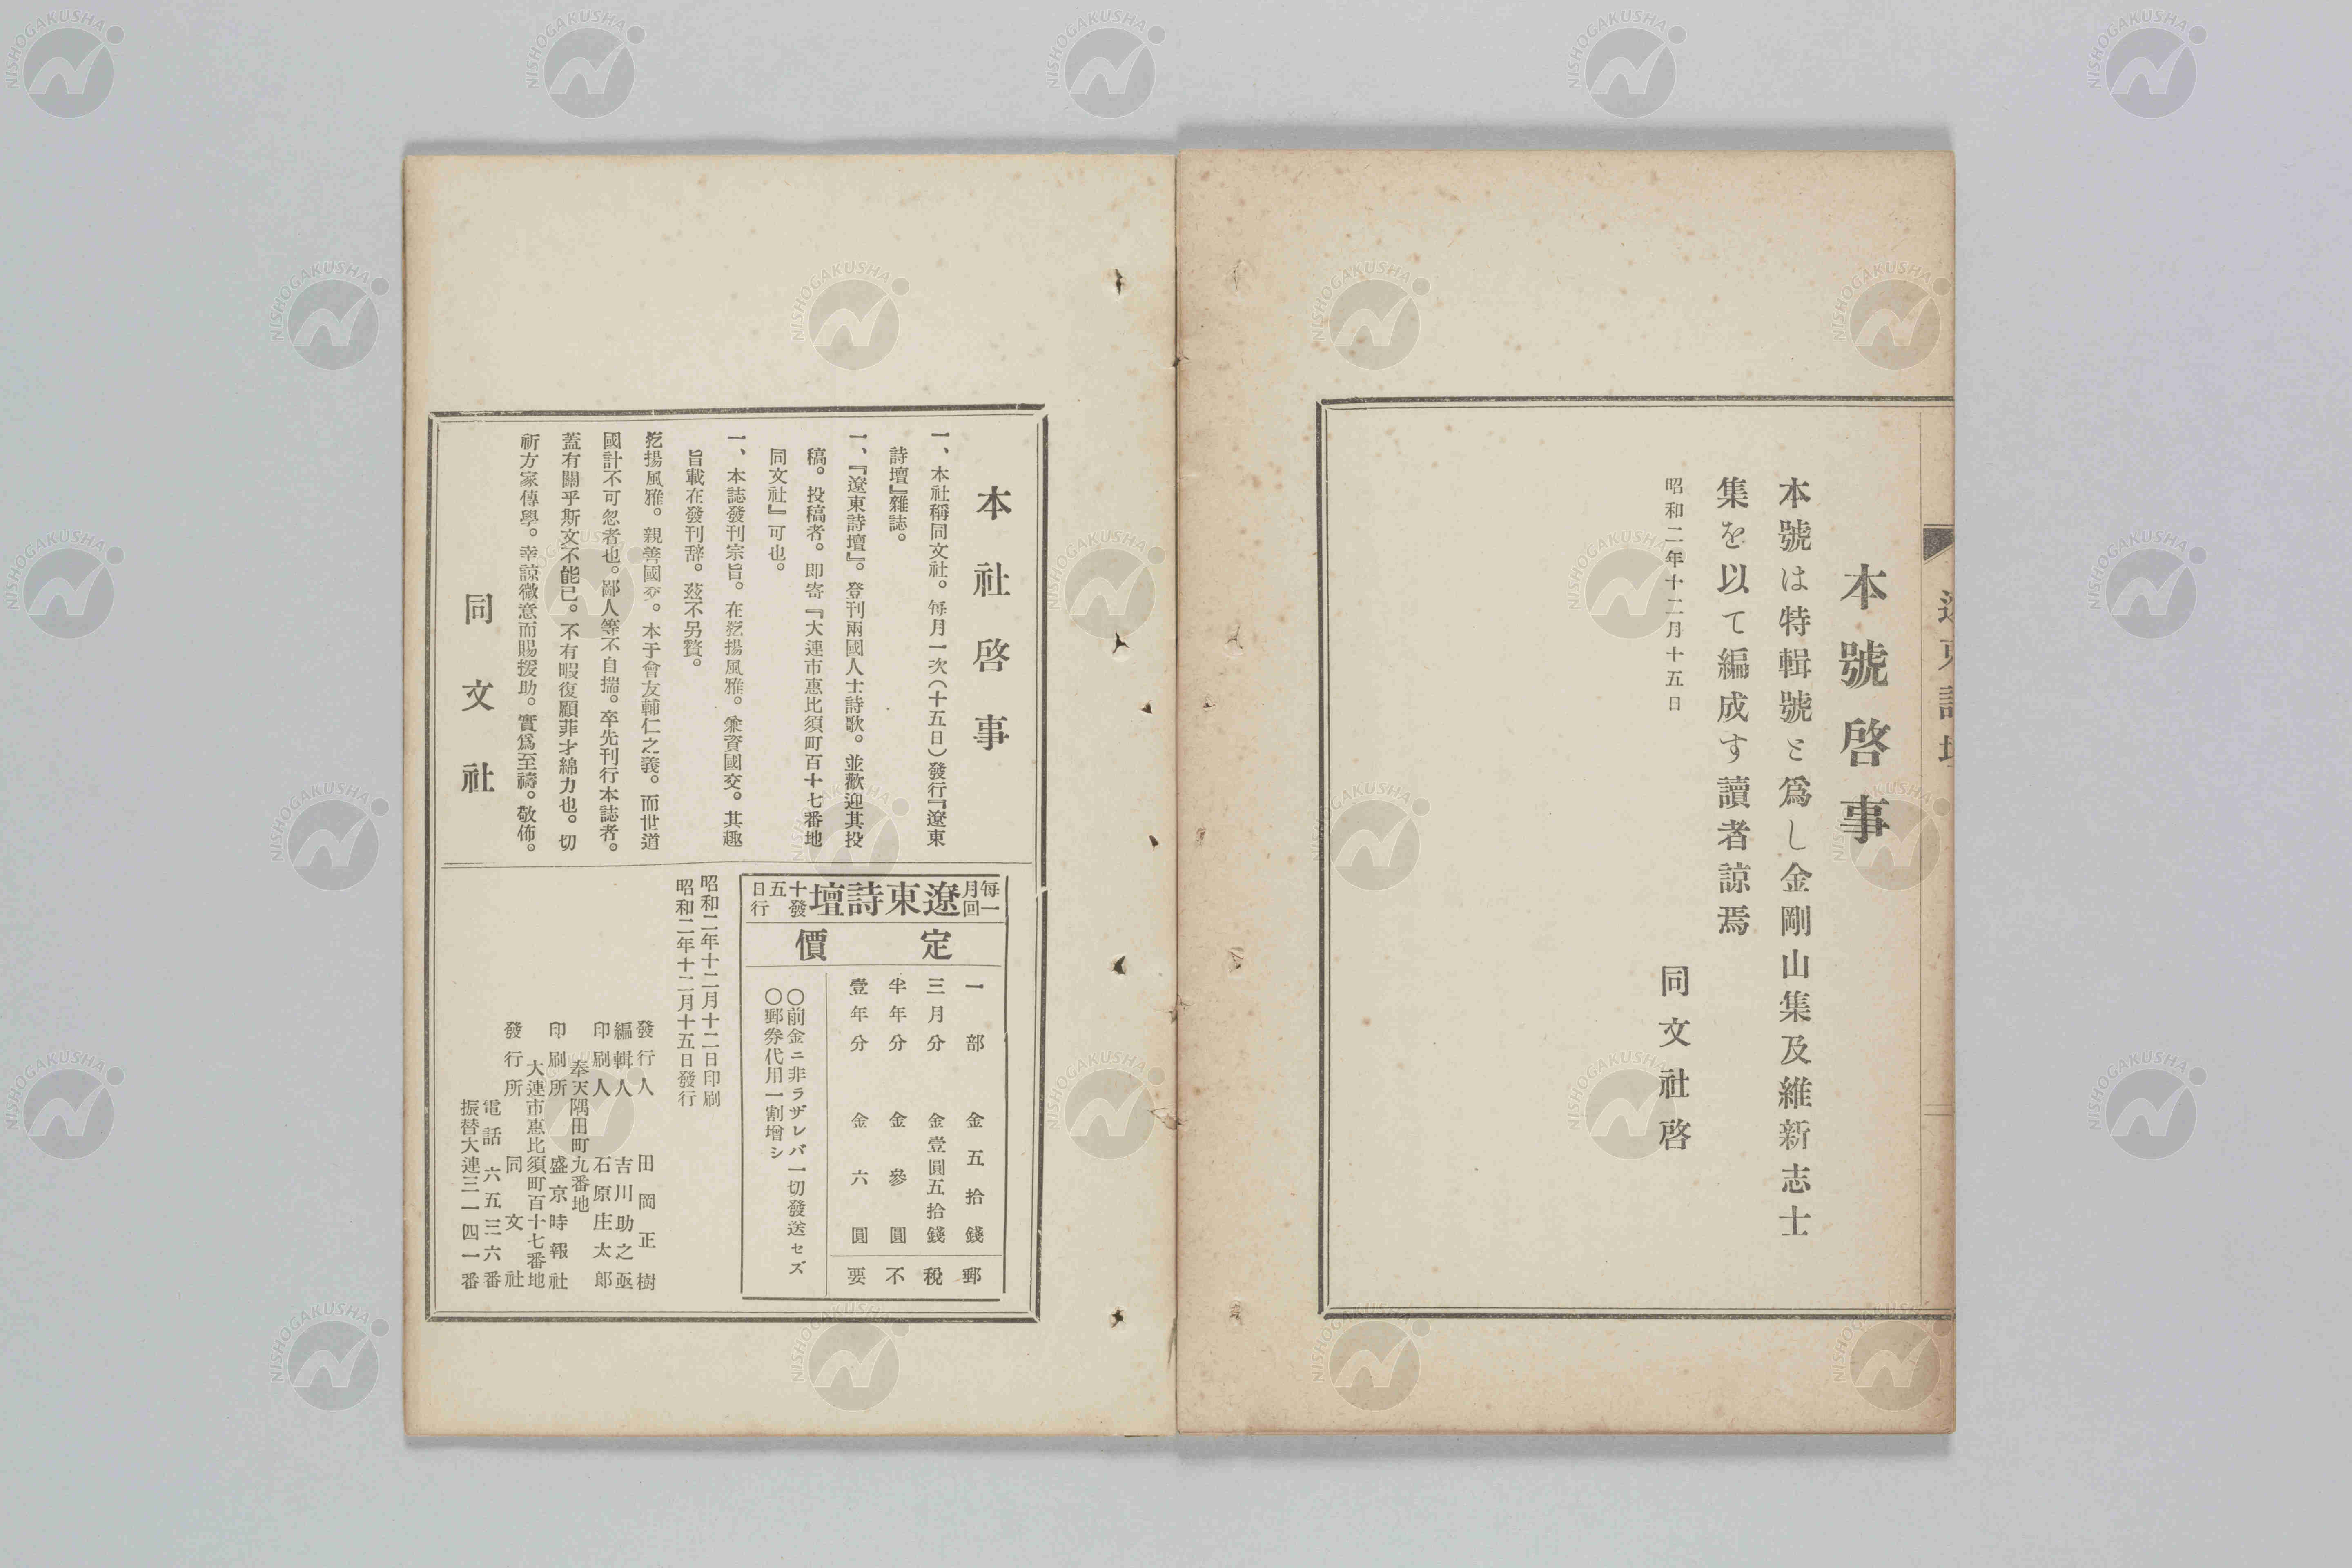 遼東詩壇
本號啓事
本號は特輯號と爲し金剛山集及維新志士
集を以て編成す讀者諒焉
昭和二年十二月十五日
同文社啓
本社啓事
一、本社稱同文社。每月一次(十五日)發行『遼東
詩壇』雜誌。
一、『遼東詩壇』。登刊兩國人士詩歌。並歡迎其投
稿。投稿者。即寄『大連市惠比須町百十七番地
同文社』可也。
一、本誌發刊宗旨。在扢揚風雅。兼資國交。其趣
旨載在發刊辞。茲不另贅。
扢揚風雅。親善國交。本于會友輔仁之義。而世道
國計不可忽者也。鄙人等不自揣。卒先刊行本誌者。
蓋有關乎斯文不能已。不有暇復顧菲才綿力也。切
祈方家傳學。幸諒微意而賜援助。實爲至禱。敬佈。
同文社
每月一回
遼東詩壇
十五日發行
定價
一部 金五拾錢
三月分 金壹圓五拾錢
半年分 金參圓
壹年分 金六圓
郵稅不要
〇前金ニ非ラザレバ一切發送セズ
〇郵券代用一割增シ
昭和二年十二月十二日印刷
昭和二年十二月十五日發行
發行人 田岡正樹
編輯人 吉川助之亟
印刷人 石原庄太郎
奉天隅田町九番地
印刷所 盛京時報社
大連市惠比須町百十七番地
發行所 同文社
電話六五三六番
振替大連三一四一番
NISHOGAKUSHA